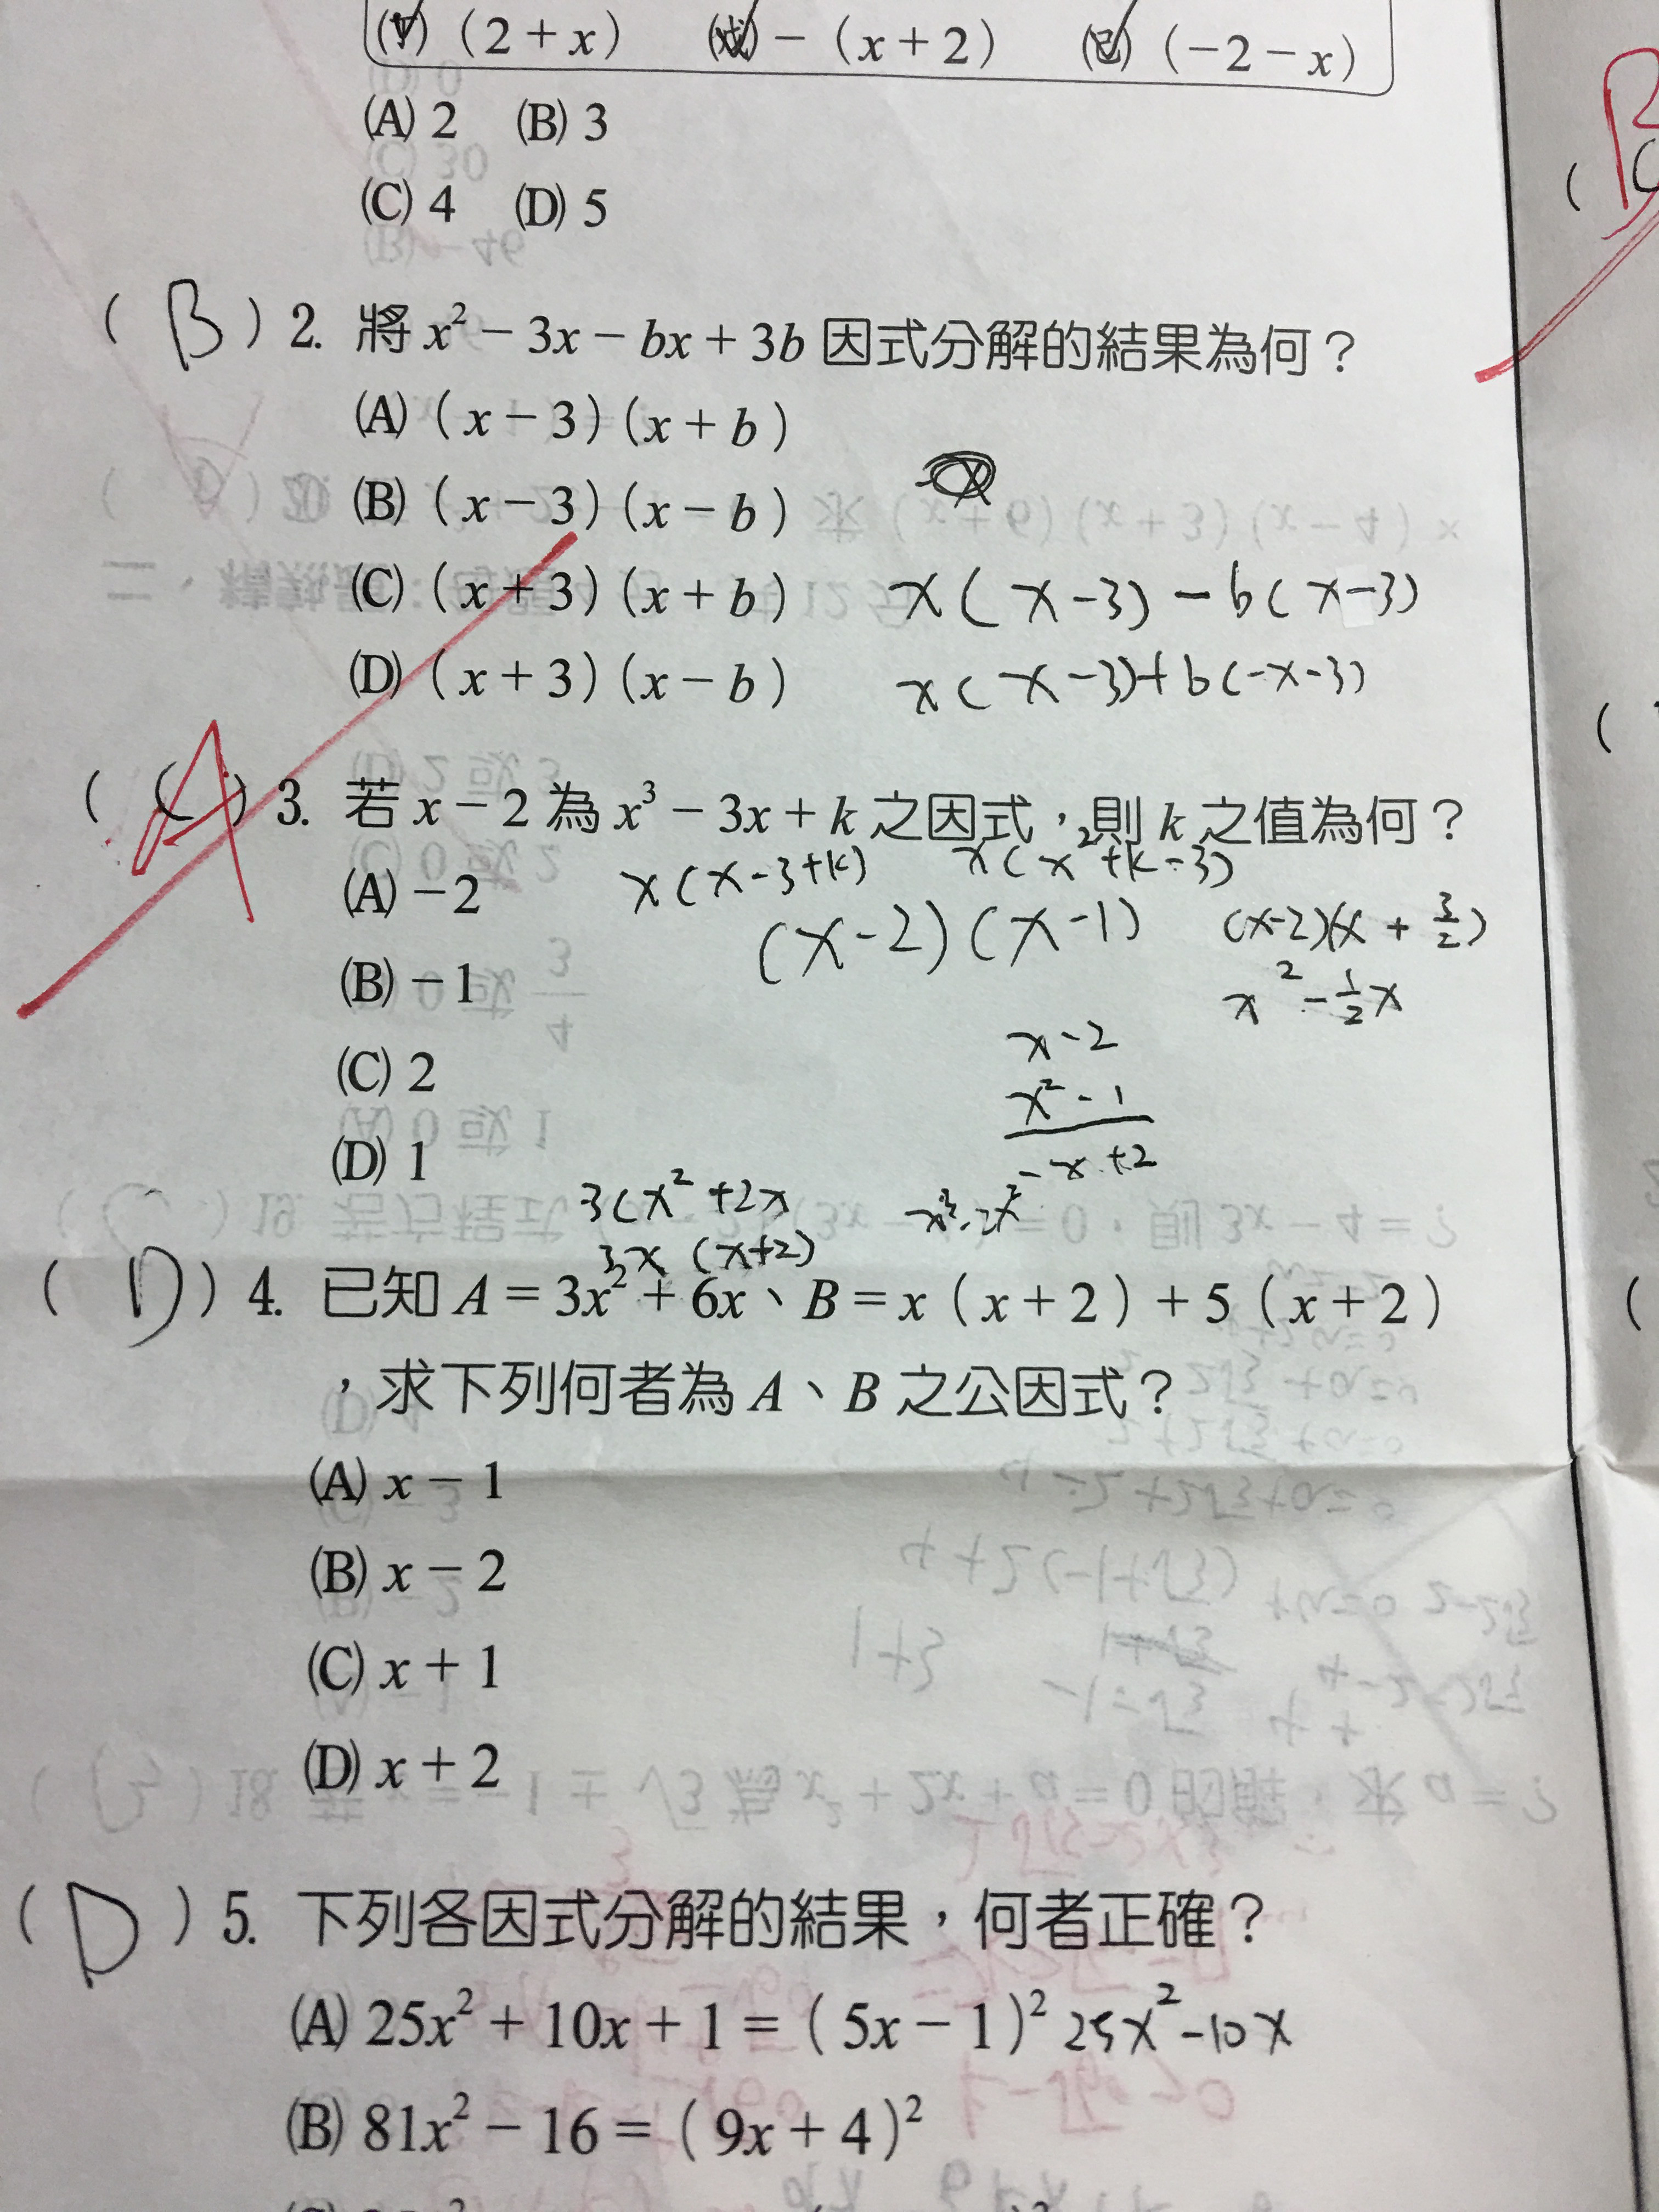 (2+x) -(x+2) (己) (-2-x)
(A) 2 (B) 3
(C) 4 (D) 5
( B ) 2. 將 x² - 3x - bx + 3b 因式分解的結果為何？
(A) (x-3)(x+b)
(B) (x-3)(x-b)
(C) (x+3)(x+b)
x(x-3)-b(x-3)
(D) (x+3)(x-b)
x(x-3)+b(-x-3)
( C ) A 3. 若 x-2 為 x³ - 3x + k 之因式，則 k 之值為何？
x(x-3+k) x(x²+k-3)
(A) -2
(x-2)(x-1) (x-2)(x+3/2)
(B) -1
x²-1/2x
x-2
(C) 2
x²-1
(D) 1
-x+2
3(x²+2x
x³-2x²
3x(x+2)
( D ) 4. 已知 A = 3x² + 6x、B = x(x+2)+5(x+2)
，求下列何者為 A、B 之公因式？
(A) x-1
(B) x-2
(C) x+1
(D) x+2
( D ) 5. 下列各因式分解的結果，何者正確？
(A) 25x² + 10x + 1 = (5x-1)² 25x²-10x
(B) 81x² - 16 = (9x+4)²
B